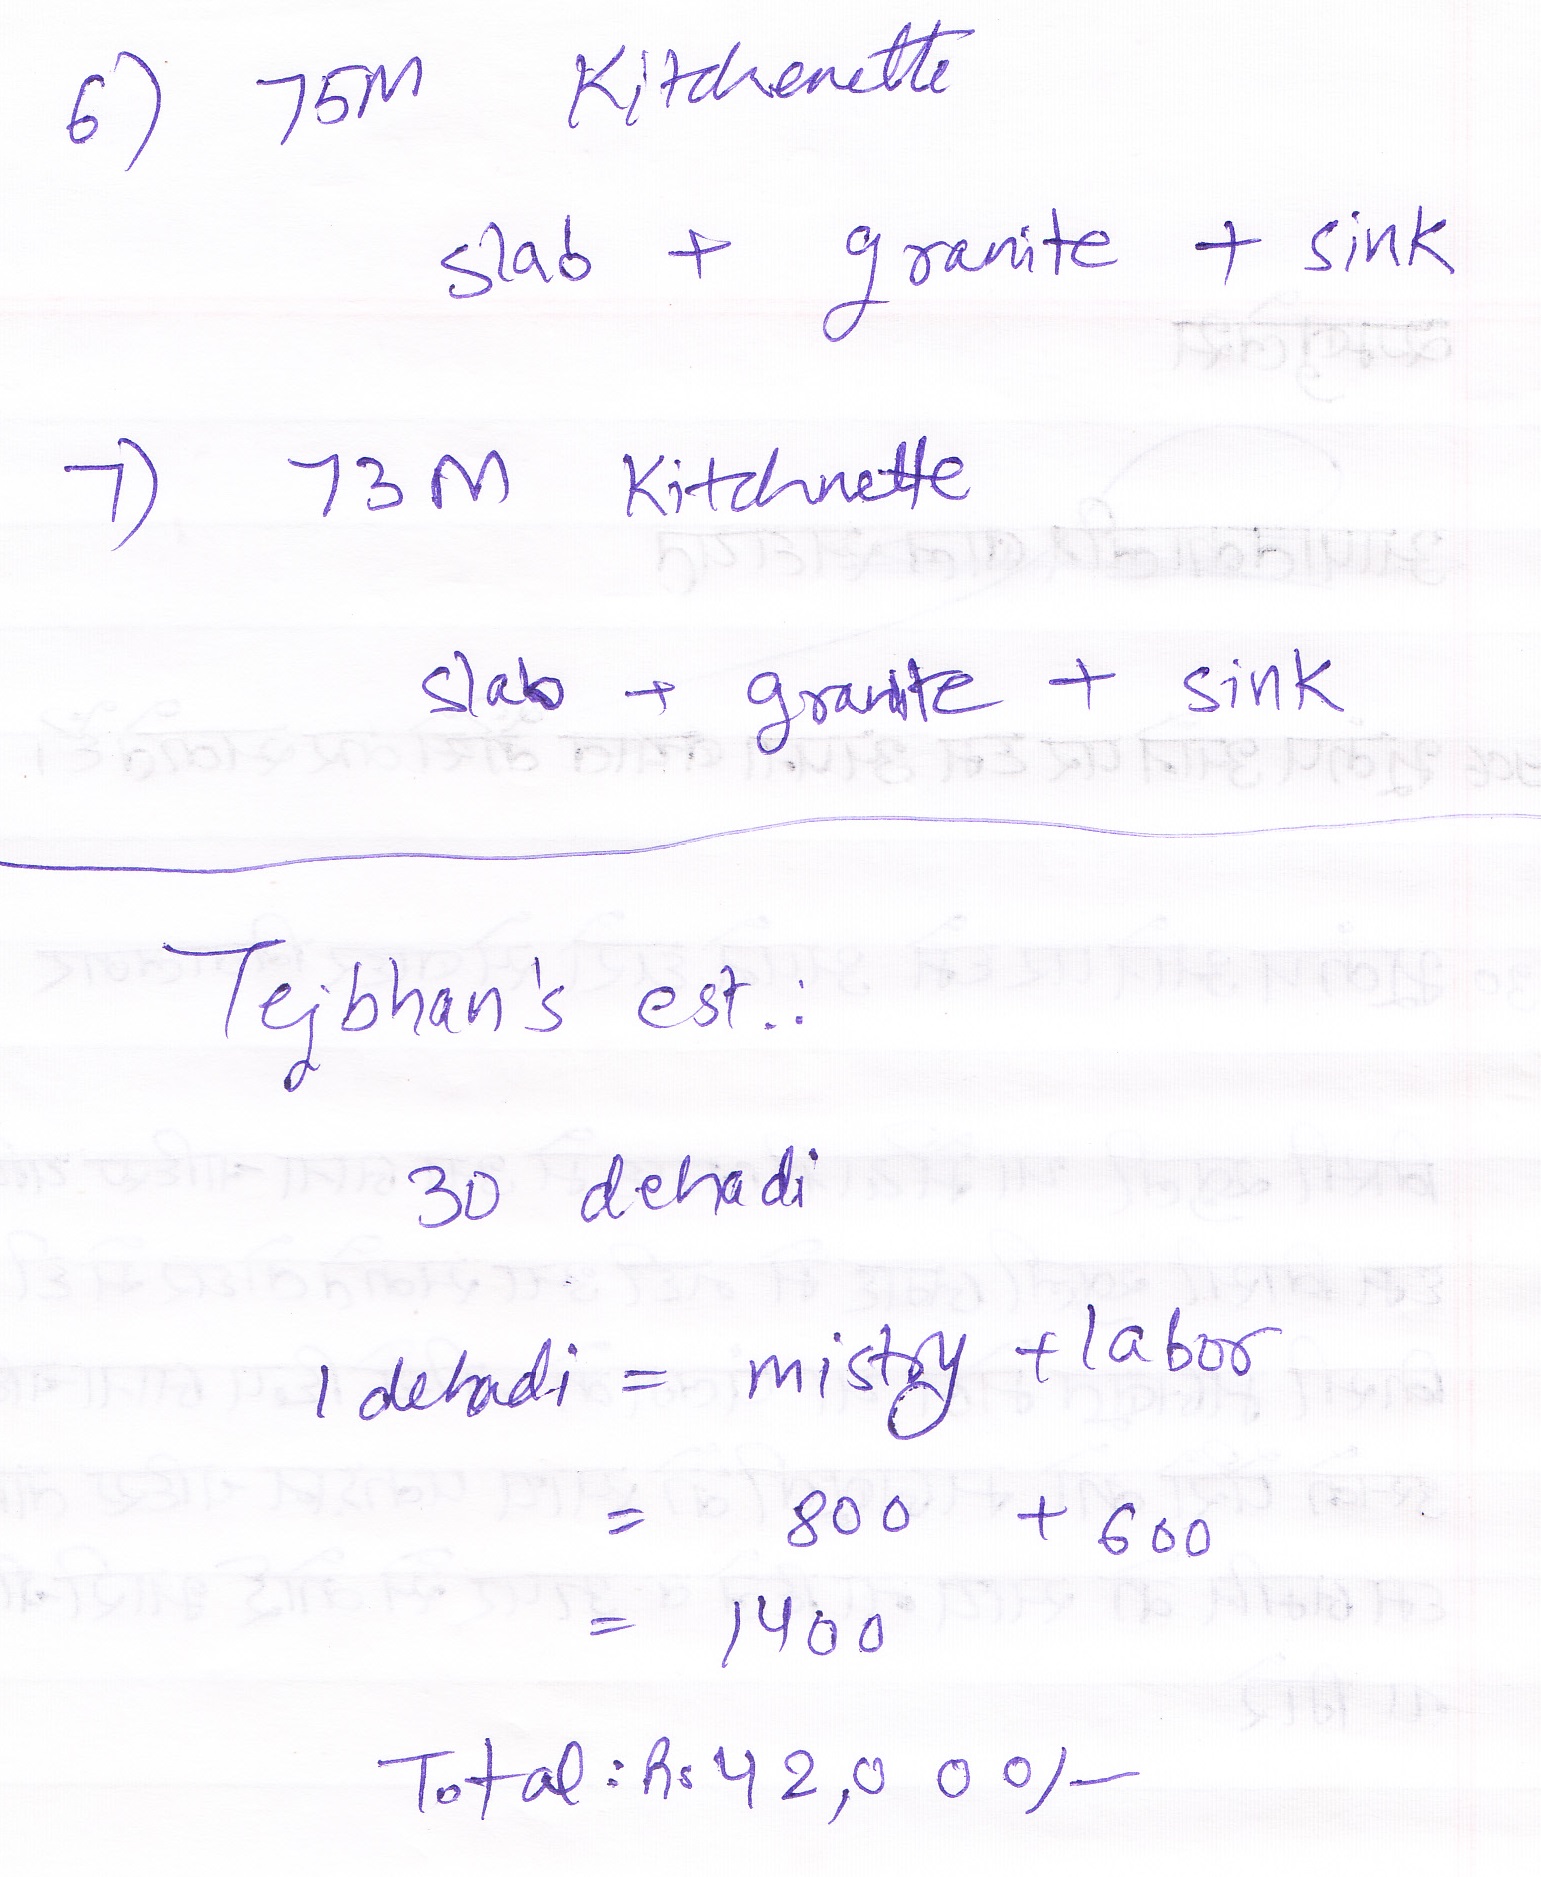 6) 75M Kitchenette
slab + granite + sink
7) 73M Kitchnette
slab + granite + sink
Tejbhan's est.:
30 dehadi
1 dehadi = mistry + labor
= 800 + 600
= 1400
Total: Rs 42,000/-